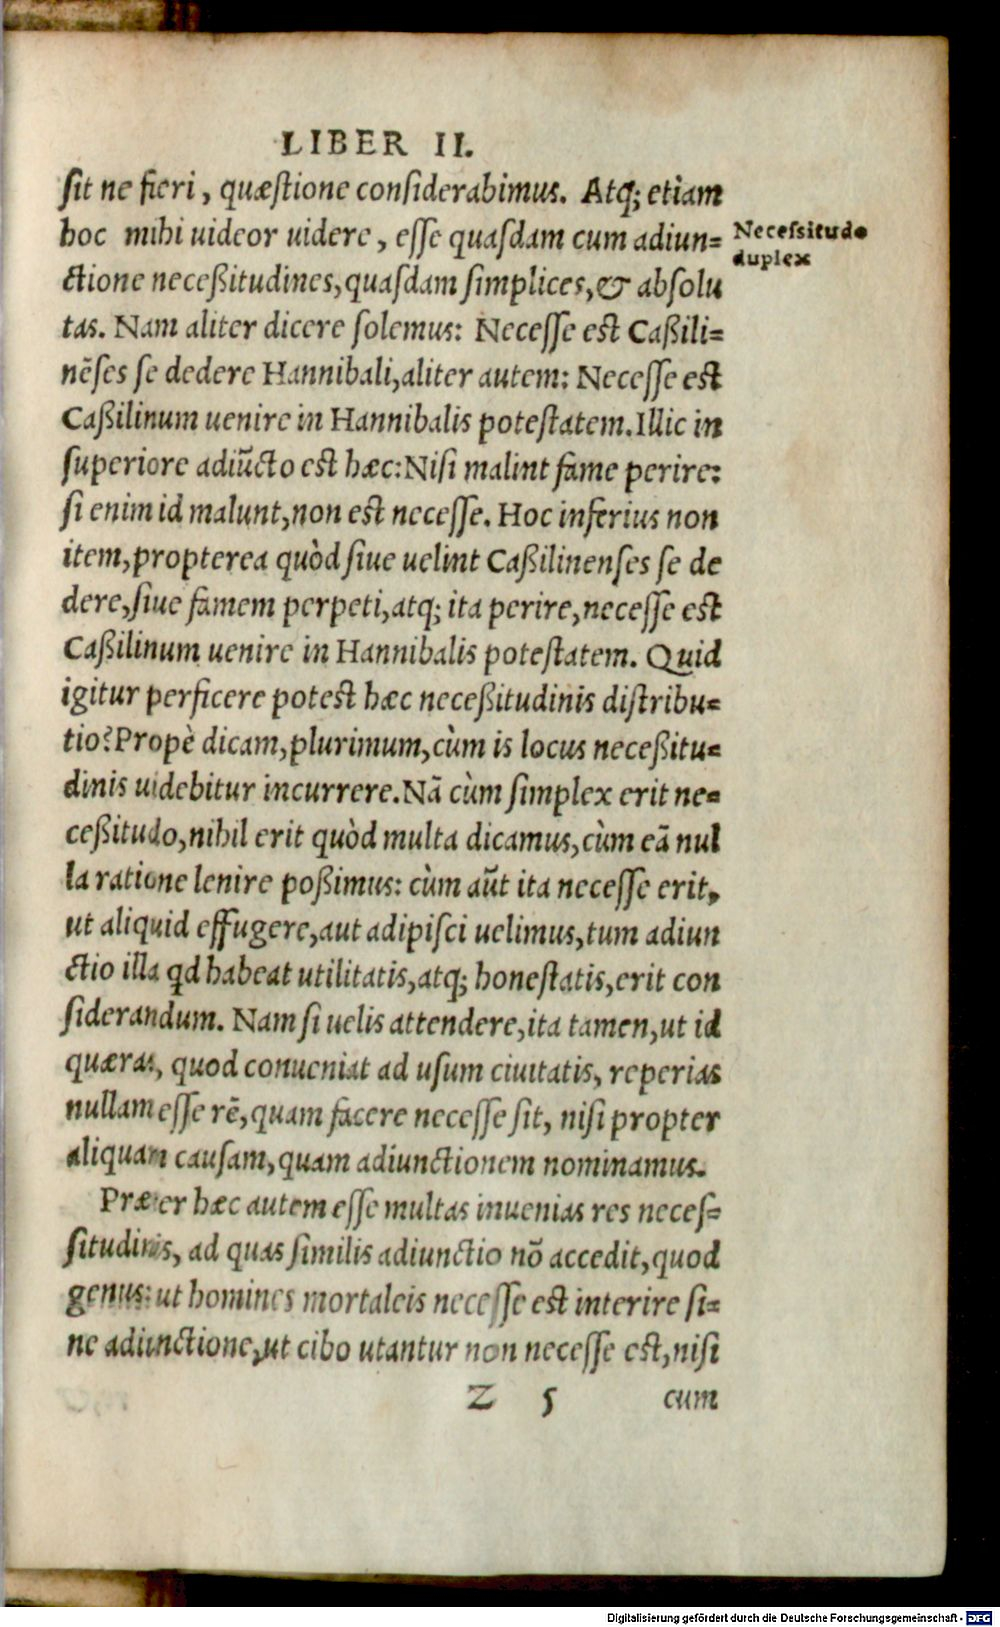 LIBER II.
sit ne fieri, quæstione considerabimus. Atq; etiam
hoc mihi uideor uidere, esse quasdam cum adiun=
ctione neceßitudines, quasdam simplices, & absolu
tas. Nam aliter dicere solemus: Necesse est Caßili=
nēses se dedere Hannibali, aliter autem: Necesse est
Caßilinum uenire in Hannibalis potestatem. Illic in
superiore adiūcto est hæc: Nisi malint fame perire:
si enim id malunt, non est necesse. Hoc inferius non
item, propterea quòd siue uelint Caßilinenses se de
dere, siue famem perpeti, atq; ita perire, necesse est
Caßilinum uenire in Hannibalis potestatem. Quid
igitur perficere potest hæc neceßitudinis distribu=
tio? Propè dicam, plurimum, cùm is locus neceßitu=
dinis uidebitur incurrere. Nā cùm simplex erit ne=
ceßitudo, nihil erit quòd multa dicamus, cùm eā nul
la ratione lenire poßimus: cùm aūt ita necesse erit,
ut aliquid effugere, aut adipisci uelimus, tum adiun
ctio illa qd habeat utilitatis, atq; honestatis, erit con
siderandum. Nam si uelis attendere, ita tamen, ut id
quæras, quod conueniat ad usum ciuitatis, reperias
nullam esse rē, quam facere necesse sit, nisi propter
aliquam causam, quam adiunctionem nominamus.
Præter hæc autem esse multas inuenias res neces=
situdinis, ad quas similis adiunctio nō accedit, quod
genus: ut homines mortaleis necesse est interire si=
ne adiunctione, ut cibo utantur non necesse est, nisi
Z 5 cum
Necessitudo
duplex
Digitalisierung gefördert durch die Deutsche Forschungsgemeinschaft - DFG